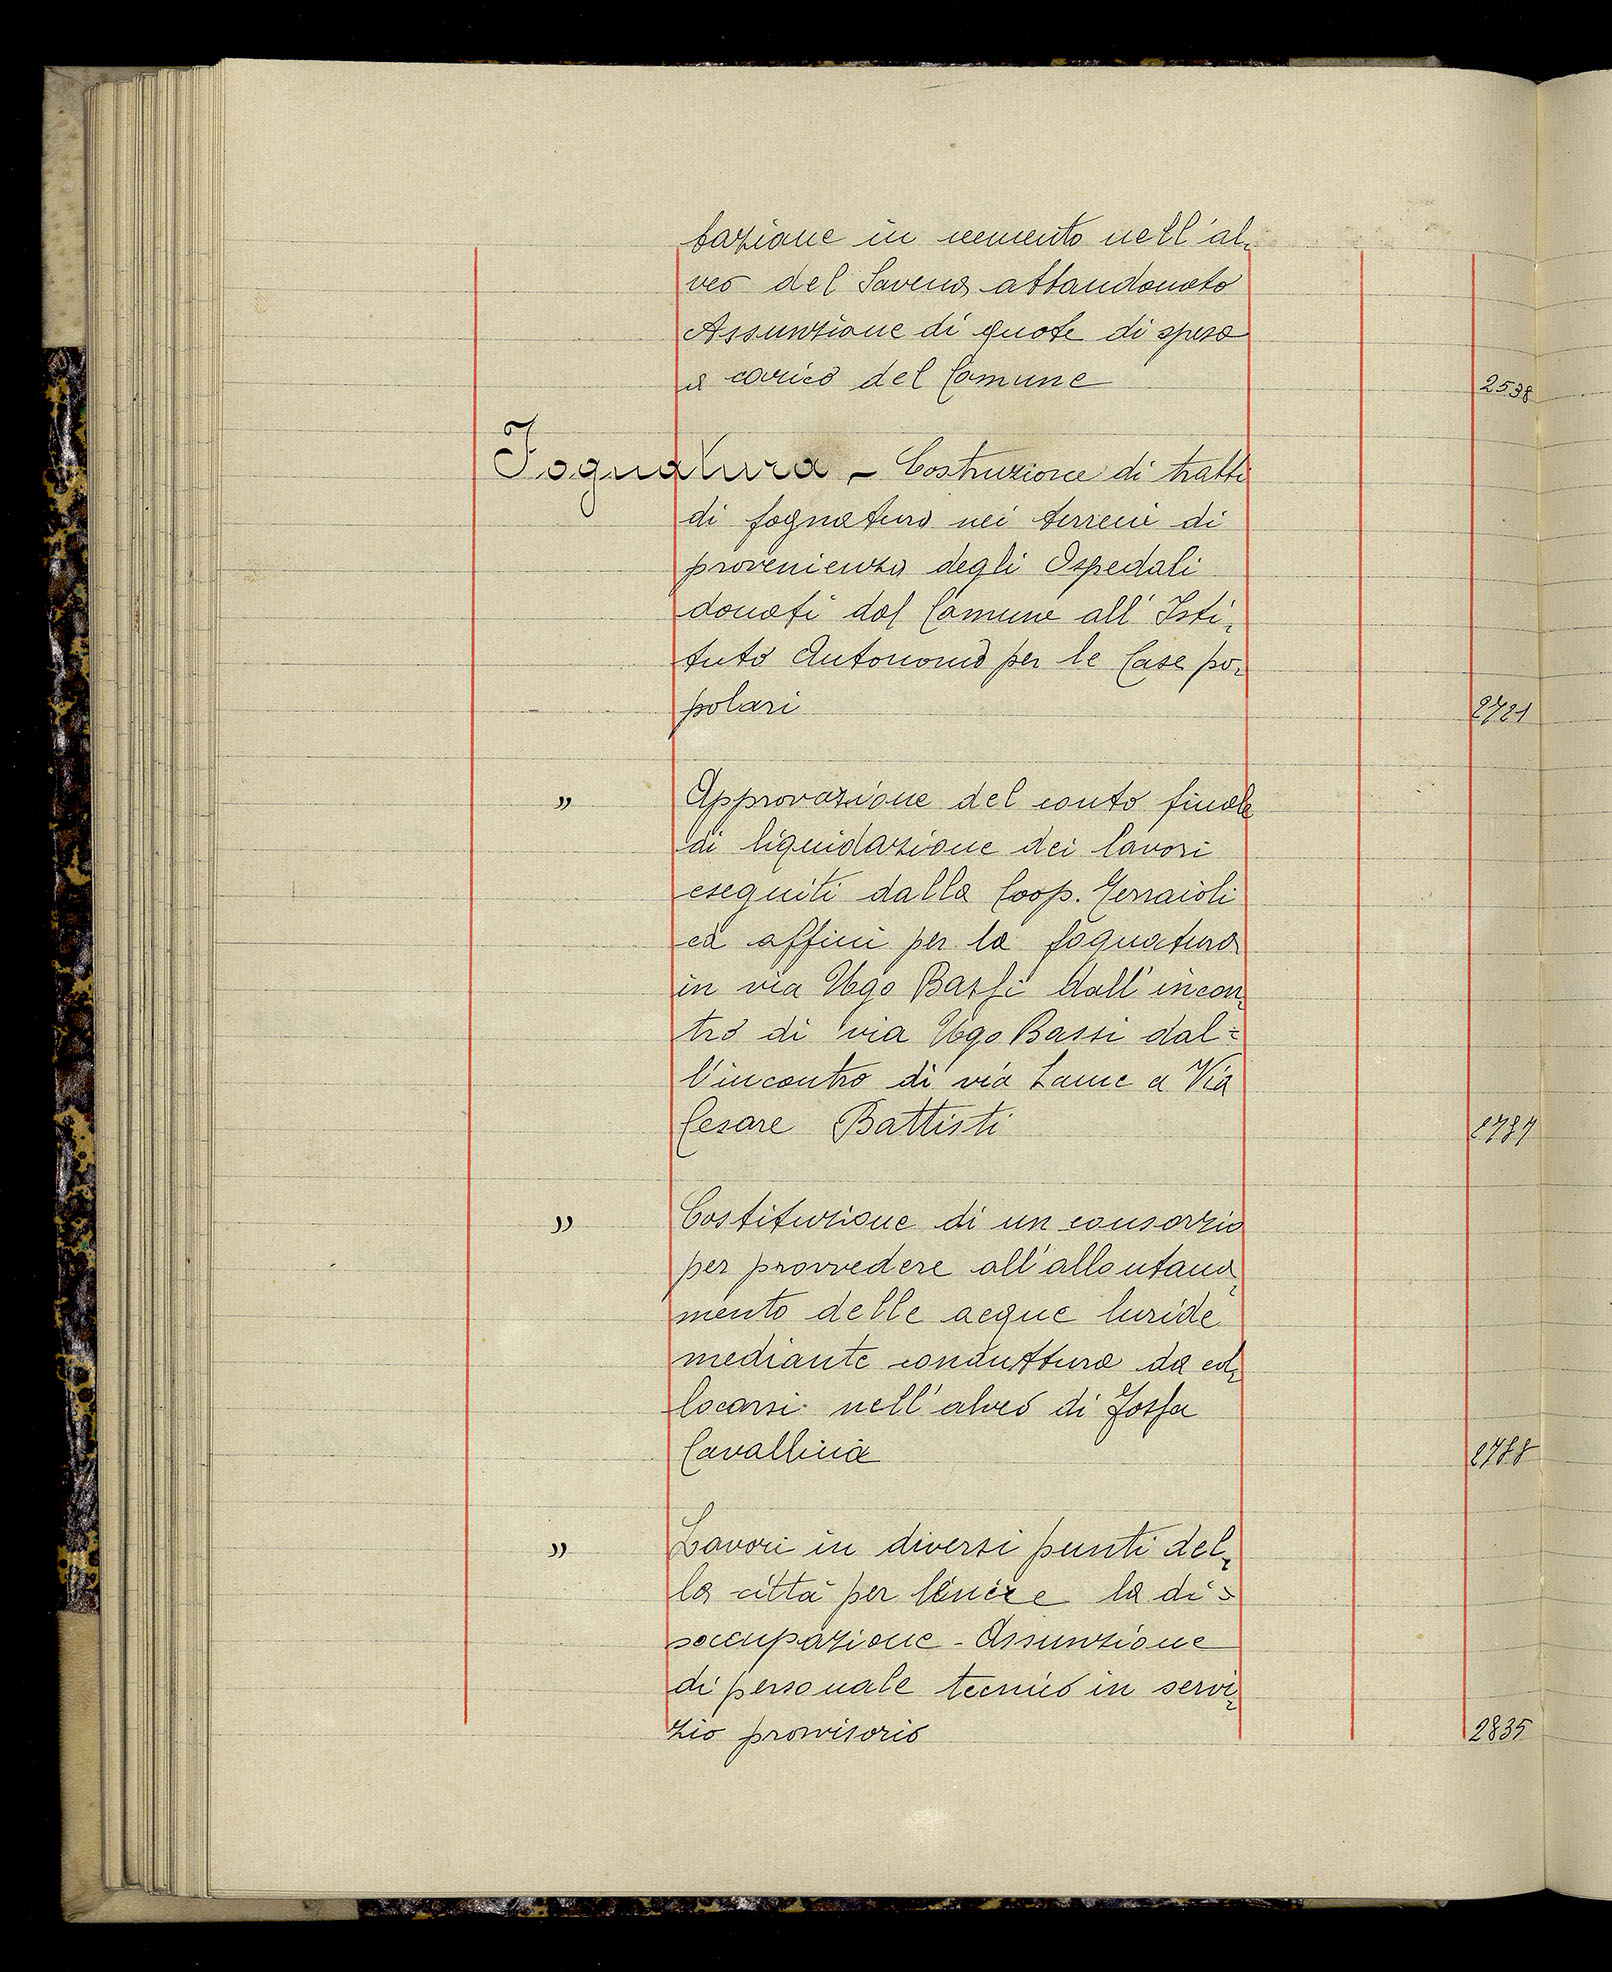 bazione in cemento nell'al-
veo del Savena abbandonato
Assunzione di quote di spesa
a carico del Comune 2538
Fognatura - Costruzione di tratti
di fognatura nei terreni di
provenienza degli Ospedali
donati dal Comune all'Isti-
tuto Autonomo per le Case po-
polari 2721
" Approvazione del conto finale
di liquidazione dei lavori
eseguiti dalla Coop. Terraioli
ed affini per la fognatura
in via Ugo Bassi dall'incon-
tro di via Ugo Bassi dal=
l'incontro di via Lame a Via
Cesare Battisti 2787
" Costituzione di un consorzio
per provvedere all'allontana-
mento delle acque luride
mediante conduttura da col-
locarsi nell'alveo di Fossa
Cavallina 2788
" Lavori in diversi punti del-
la città per lenire la di=
soccupazione - Assunzione
di personale tecnico in servi-
zio provvisorio 2835